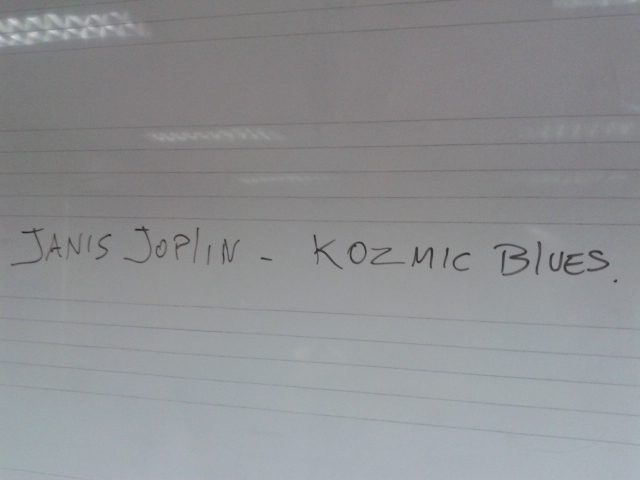 JANIS JOPLIN - KOZMIC BLUES.